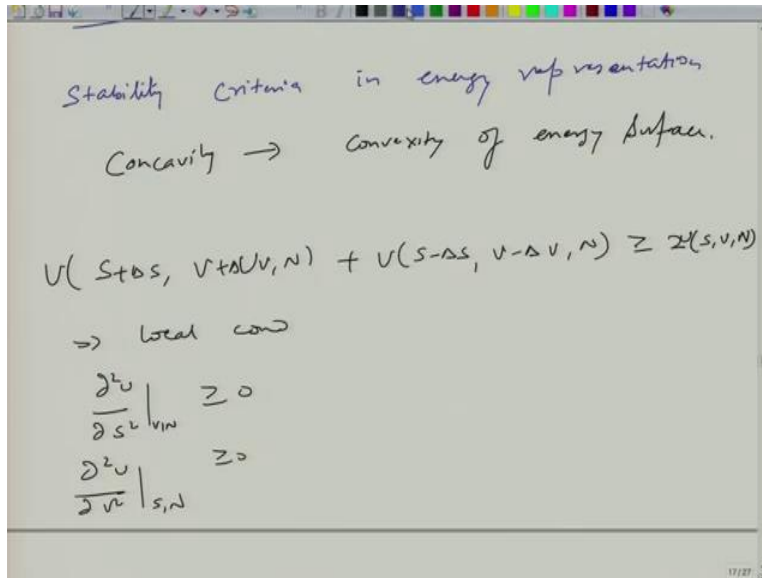 Stability Criteria in energy representation
Concavity → Convexity of energy surface.
U( S+ΔS, V+ΔUV, N) + U(S-ΔS, V-ΔV, N) ≥ 2U(S,V,N)
⇒ local con
∂²U/∂S² |V,N ≥ 0
∂²U/∂V² |S,N ≥0
17/27